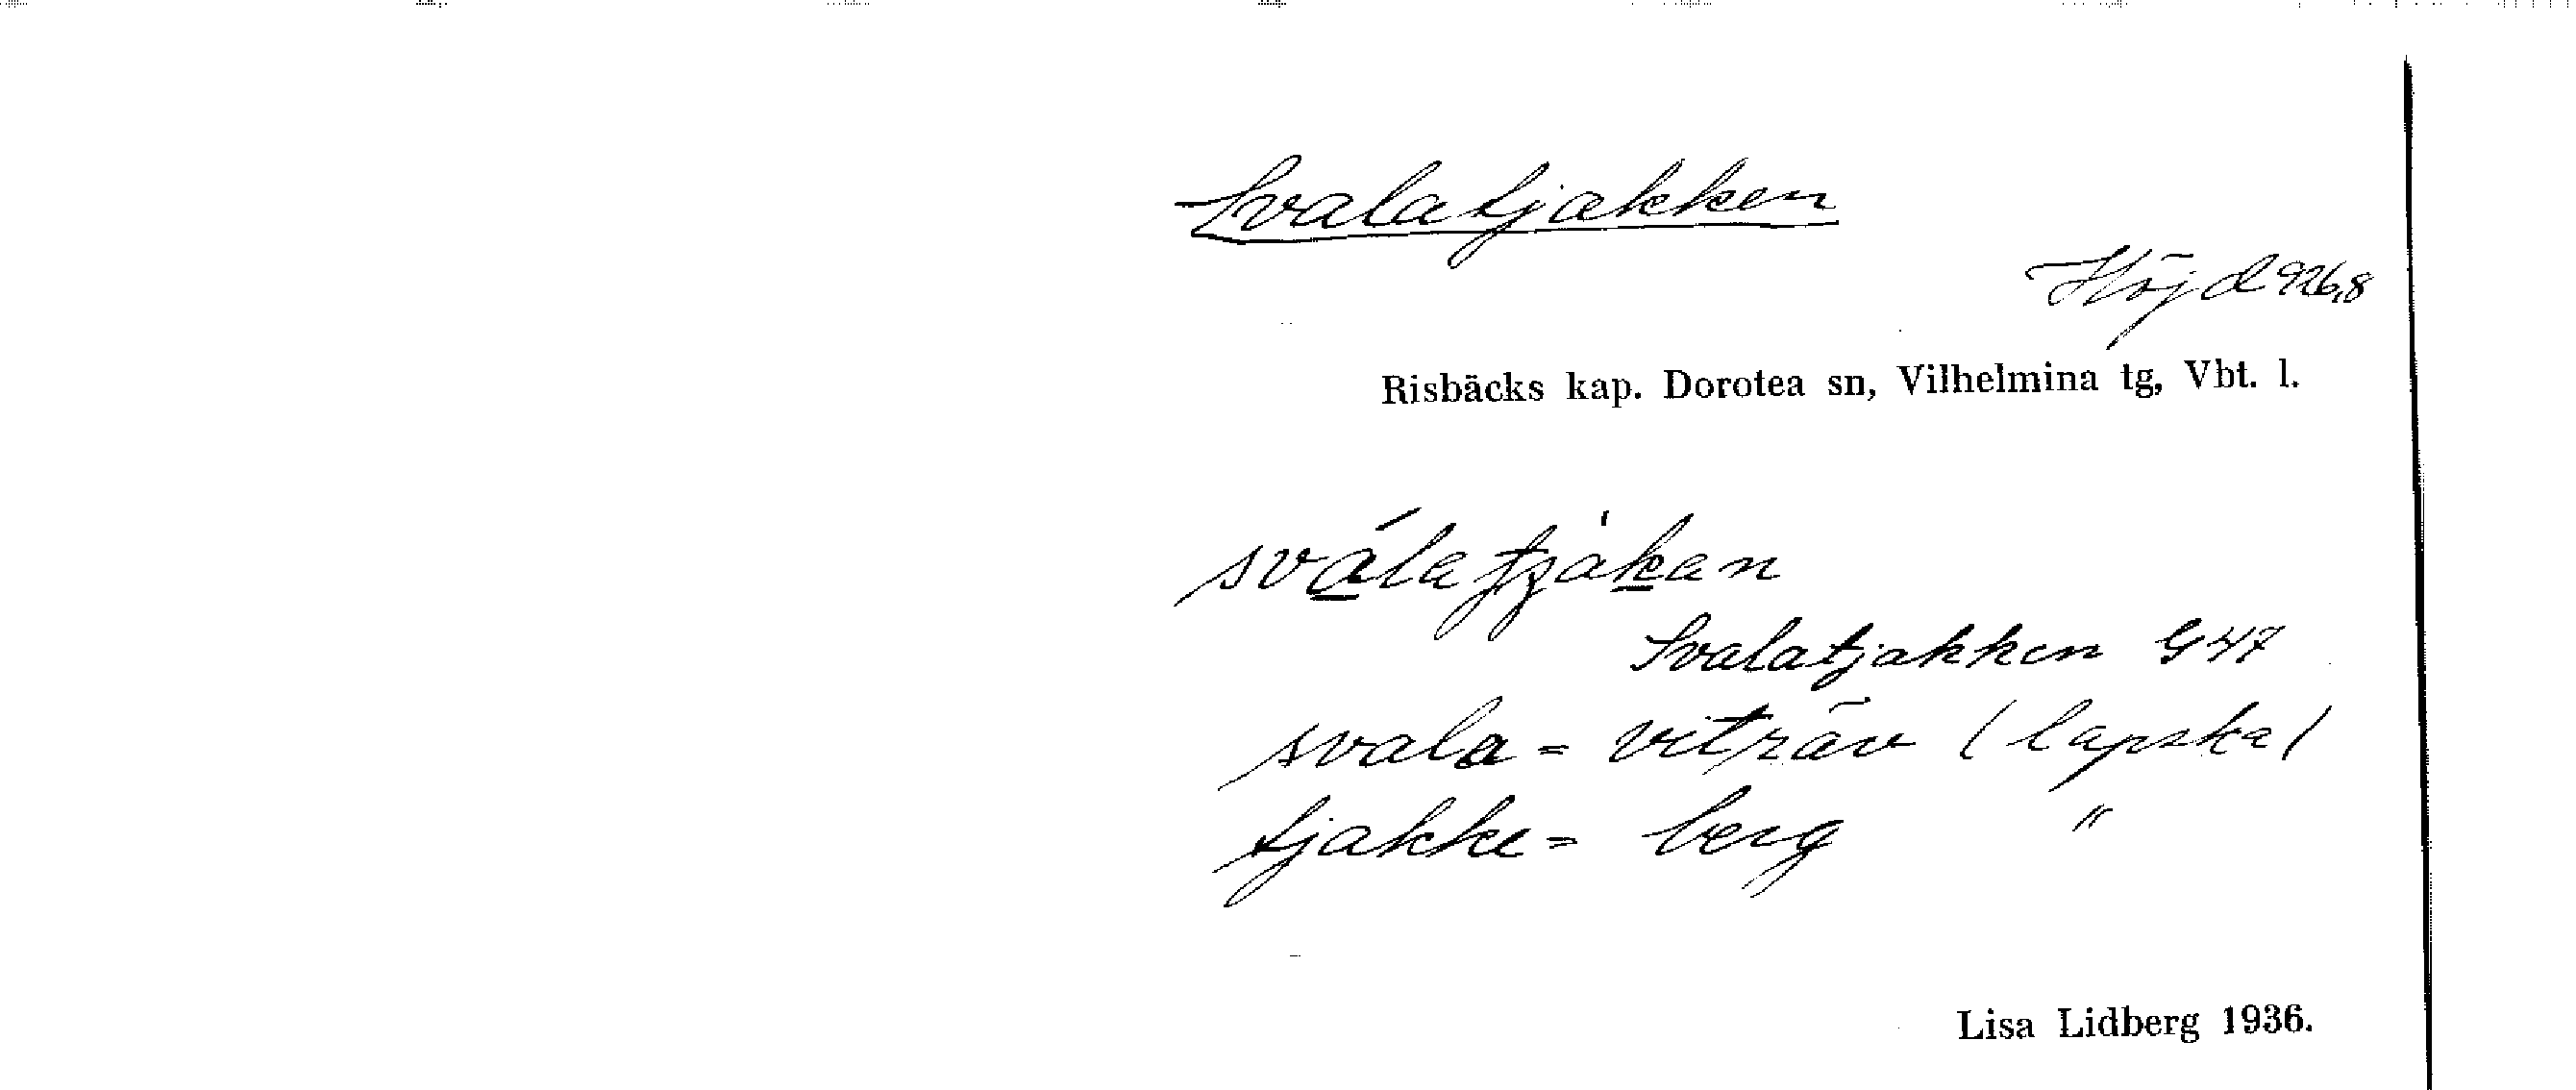 Svalatjakken
Höjd 926,8
Risbäcks kap. Dorotea sn, Vilhelmina tg, Vbt. l.
sválatjàkan
Svalatjakken G 47
svala = viträv (lapska)
tjakke = berg "
Lisa Lidberg 1936.